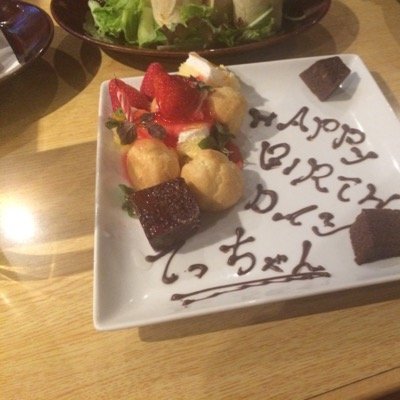 HAPPY
BIRTH
DAY
てっちゃん